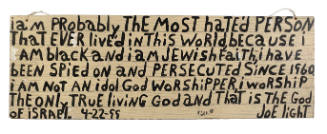 iam PRobabLy THE MOST haTEd PERSON
ThaT EVER Lived in This WORLd, bECausE i
AM bLack and i aM JEWish faiTh, i havE
bEEN SPiEd ON and PERSECUTEd SINCE 1960
I aM NOT AN idOL God WORshiPPER i WORshiP
ThE ONLy TRUE Living God and ThaT is ThE God
OF iSRAEL 4-22-99 JOE LighT